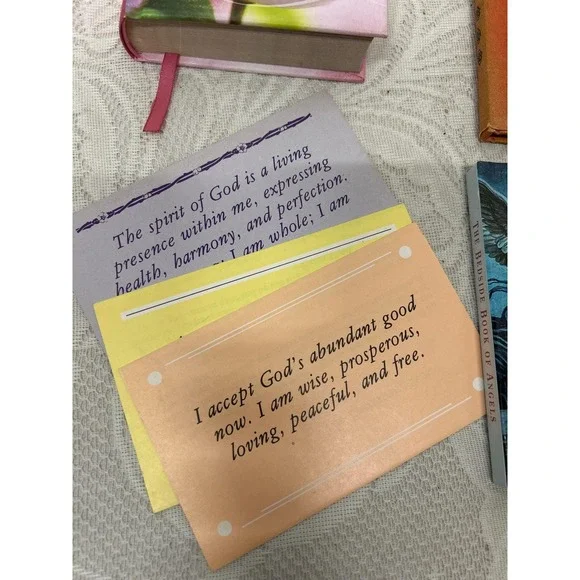 The spirit of God is a living
presence within me, expressing
health, harmony, and perfection.
I am whole; I am
I accept God's abundant good
now. I am wise, prosperous,
loving, peaceful, and free.
THE BEDSIDE BOOK OF ANGELS